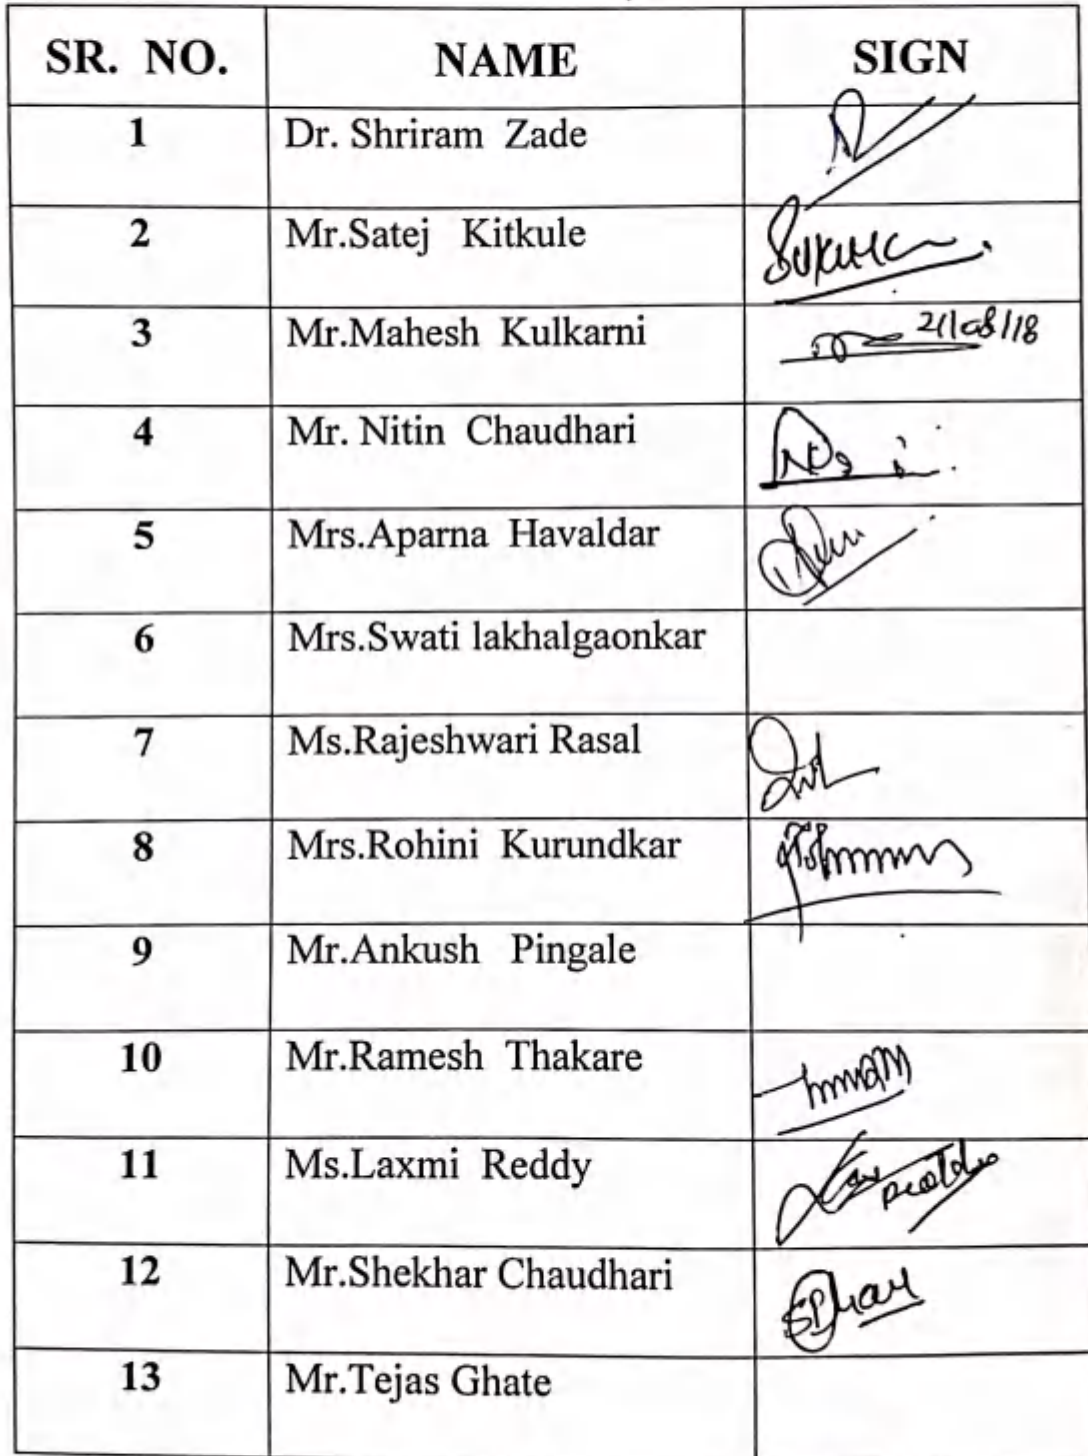 SR. NO. NAME SIGN
1 Dr. Shriram Zade
2 Mr.Satej Kitkule
3 Mr.Mahesh Kulkarni 21/08/18
4 Mr. Nitin Chaudhari
5 Mrs.Aparna Havaldar
6 Mrs.Swati lakhalgaonkar
7 Ms.Rajeshwari Rasal
8 Mrs.Rohini Kurundkar
9 Mr.Ankush Pingale
10 Mr.Ramesh Thakare
11 Ms.Laxmi Reddy
12 Mr.Shekhar Chaudhari
13 Mr.Tejas Ghate